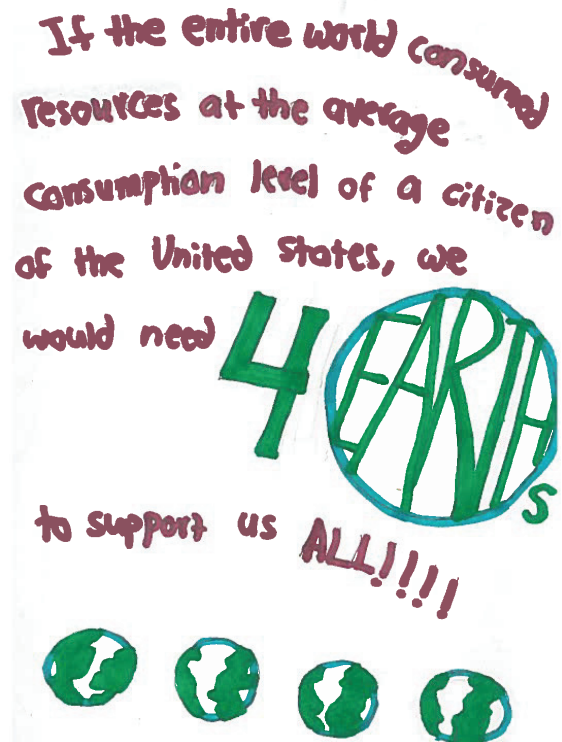 If the entire world consumed
resources at the average
consumption level of a citizen
of the United States, we
would need 4 EARTHs
to support us ALL!!!!